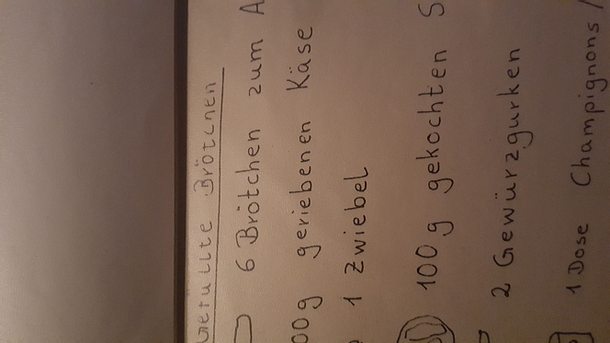 Gefüllte Brötchen
6 Brötchen zum A
00g geriebenen Käse
1 Zwiebel
100g gekochten S
2 Gewürzgurken
1 Dose Champignons /